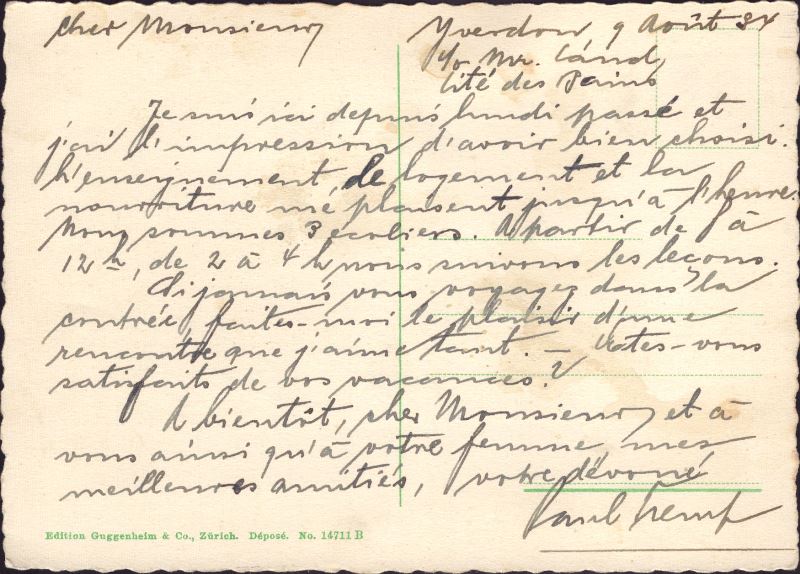 Cher Monsieur,
Yverdon, 9 Août 34
c/o Mr.
Cité des Bains
Je suis ici depuis lundi passé et
j'ai l'impression d'avoir bien choisi.
L'enseignement, le logement et la
nourriture me plaisent jusqu'à l'heure.
Nous sommes 3 écoliers. A partir de à
12 h, de 2 à 4 h nous suivons les leçons.
Si jamais vous voyagez dans la
contrée, faites-moi le plaisir d'une
rencontre que j'aime tant. – Êtes-vous
satisfaits de vos vacances?
A bientôt, cher Monsieur, et à
vous ainsi qu'à votre femme, mes
meilleures amitiés, votre dévoué
Paul
Edition Guggenheim & Co., Zürich. Déposé. No. 14711 B